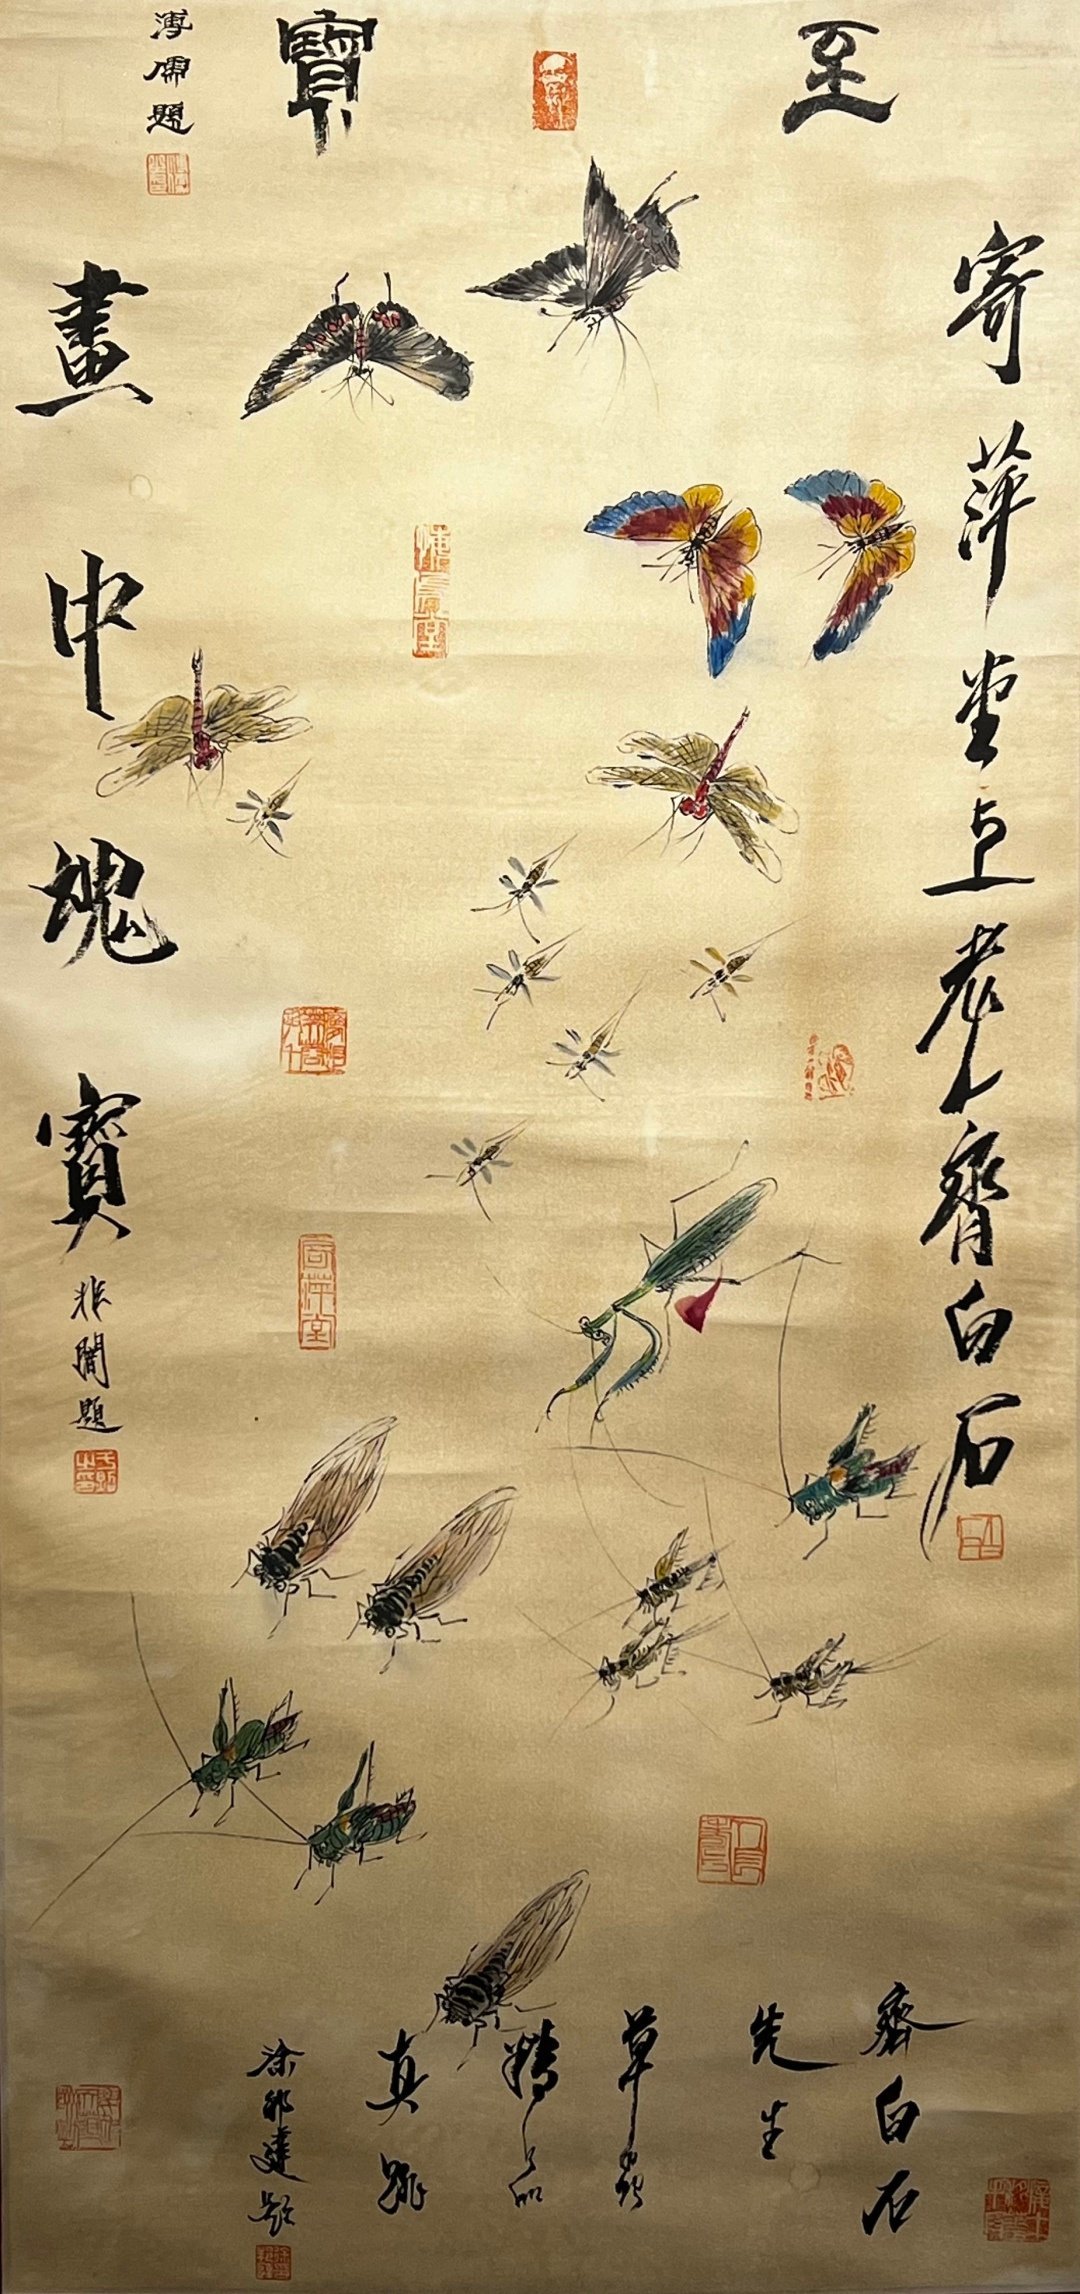 至寶
溥儒題
寄萍堂上老人齊白石
畫中瑰寶
非闇題
齊白石
先生
草蟲
精品
真跡
徐邦達題
寄萍堂